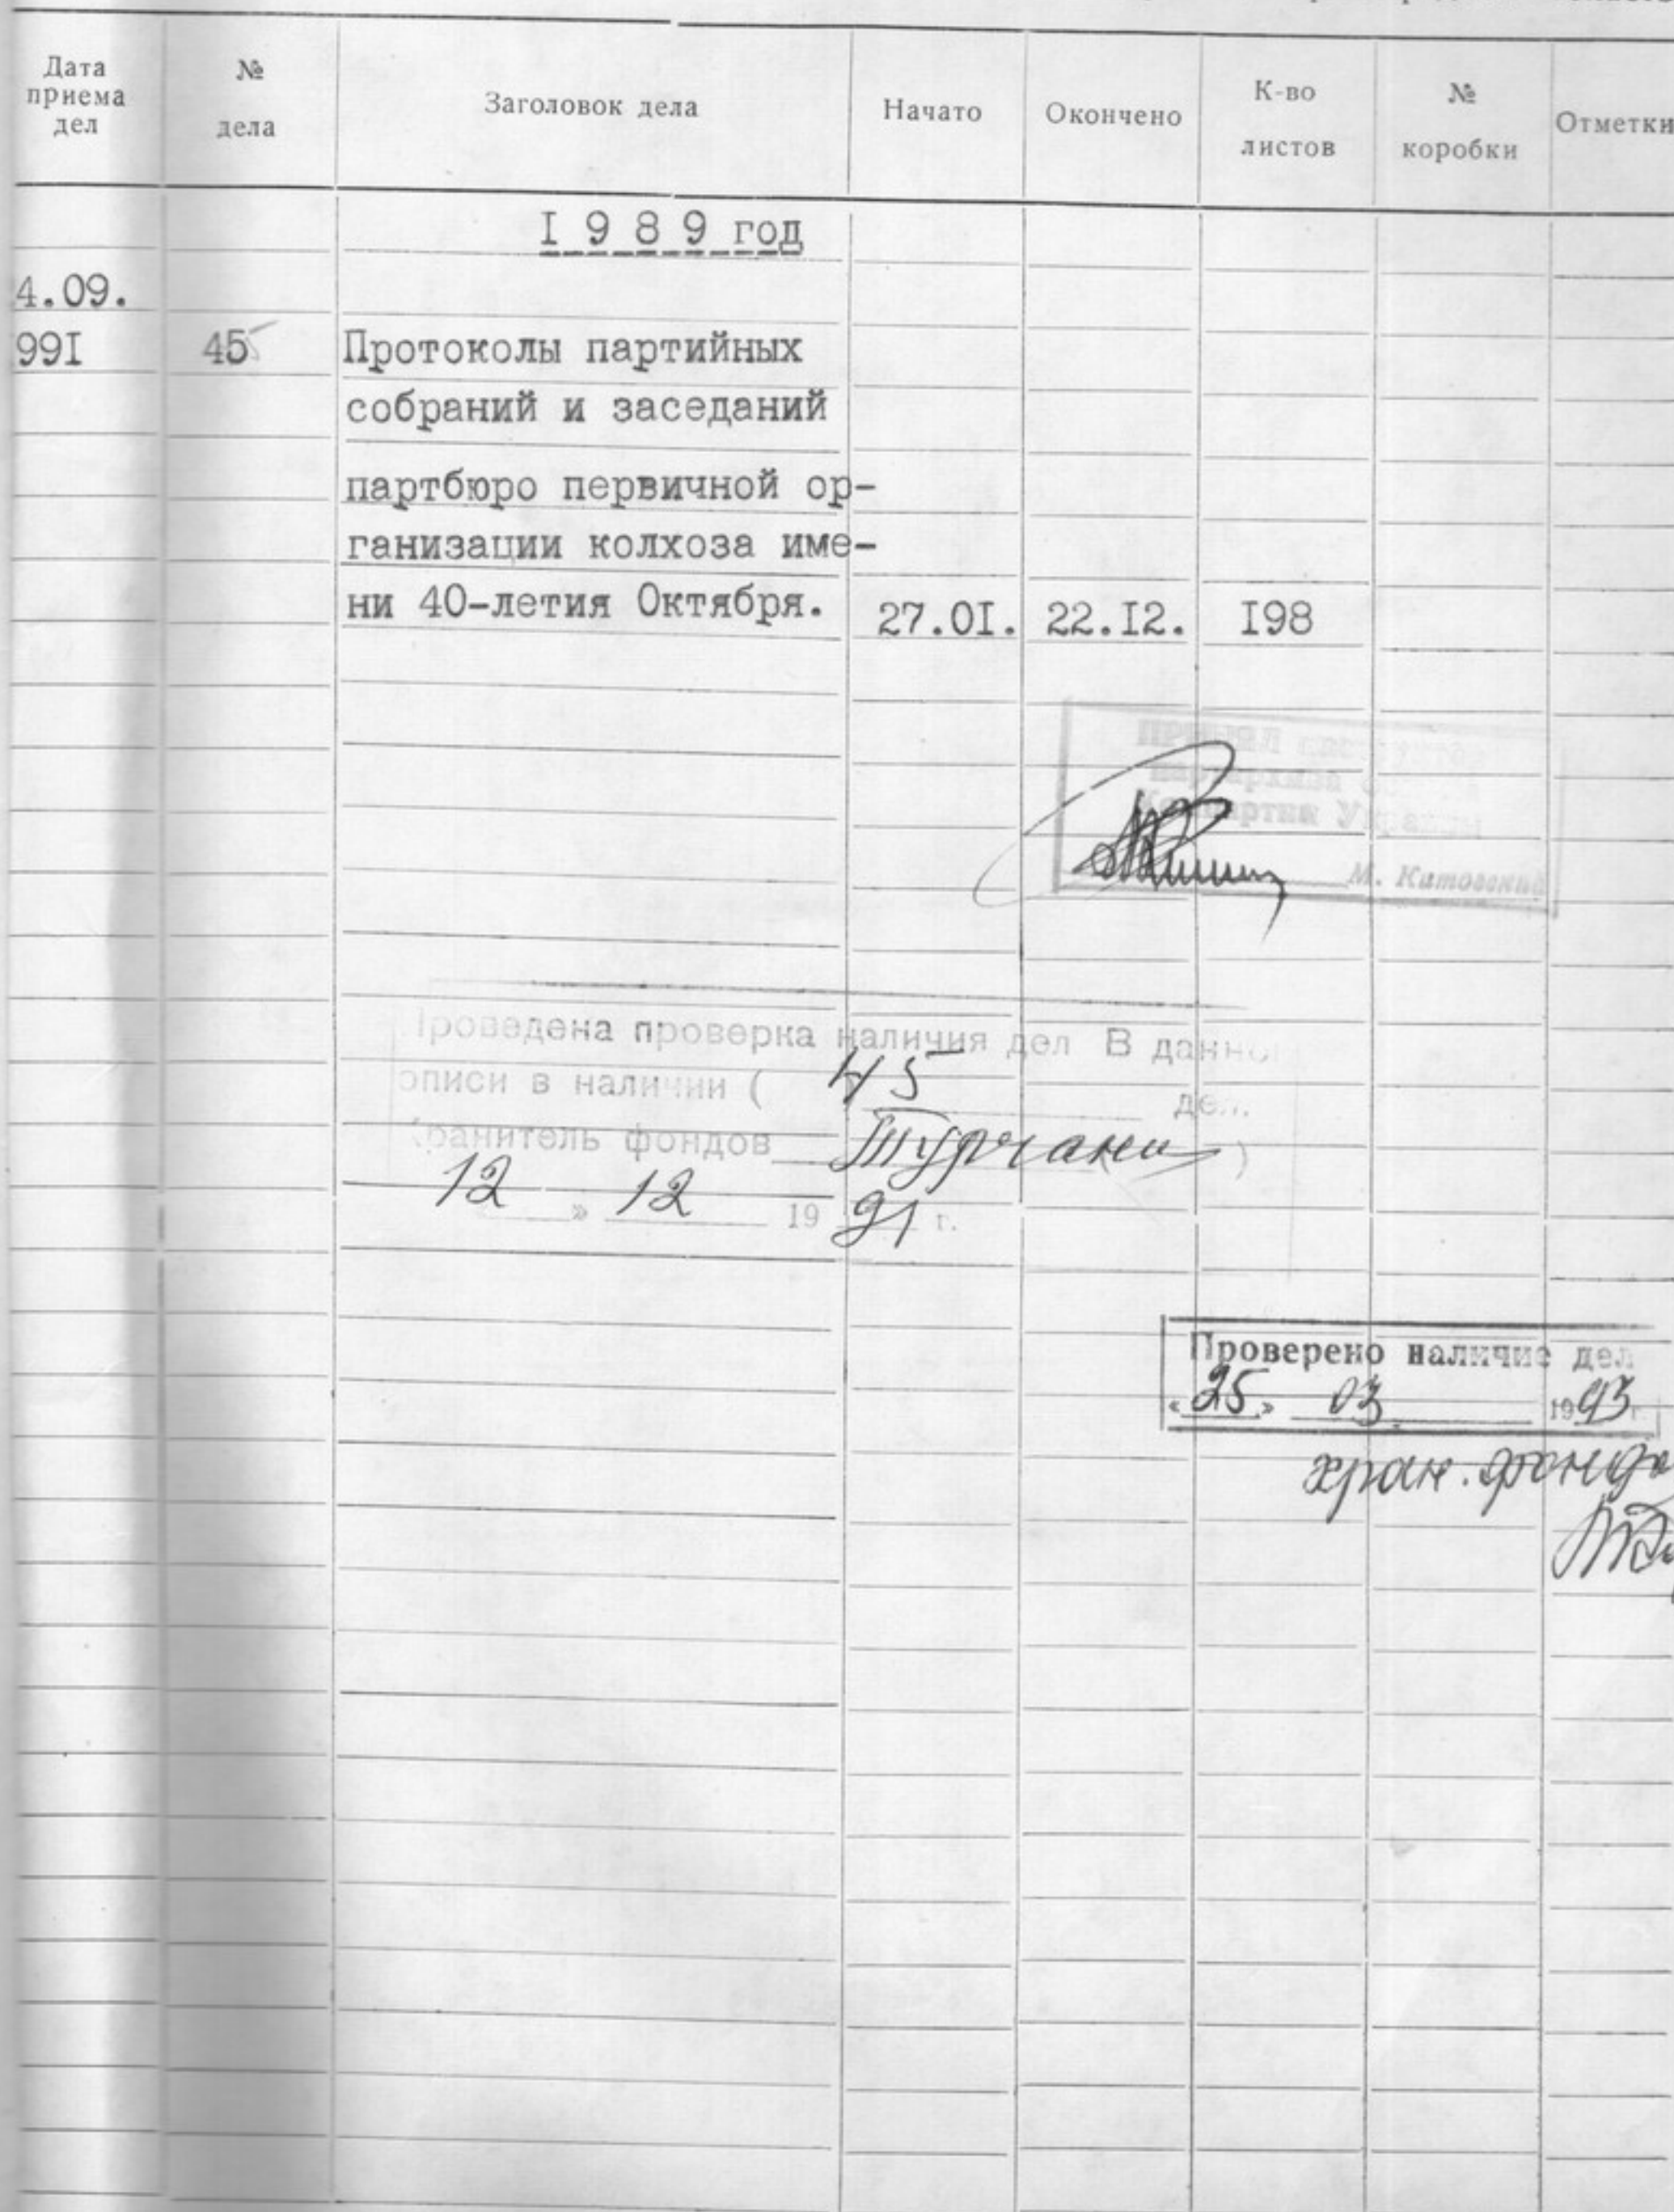 Дата приема дел № дела Заголовок дела Начато Окончено К-во листов № коробки Отметки
I 9 8 9 год
4.09.
99I 45 Протоколы партийных
собраний и заседаний
партбюро первичной ор-
ганизации колхоза име-
ни 40-летия Октября. 27.0I. 22.I2. I98
партархива
Компартии Украины
М. Китовский
Проведена проверка наличия дел В данной
описи в наличии ( 45 дел.
Хранитель фондов Турчани )
12 » 12 19 91 г.
Проверено наличие дел
« 25 » 03. 19 93 г.
хран. фондо